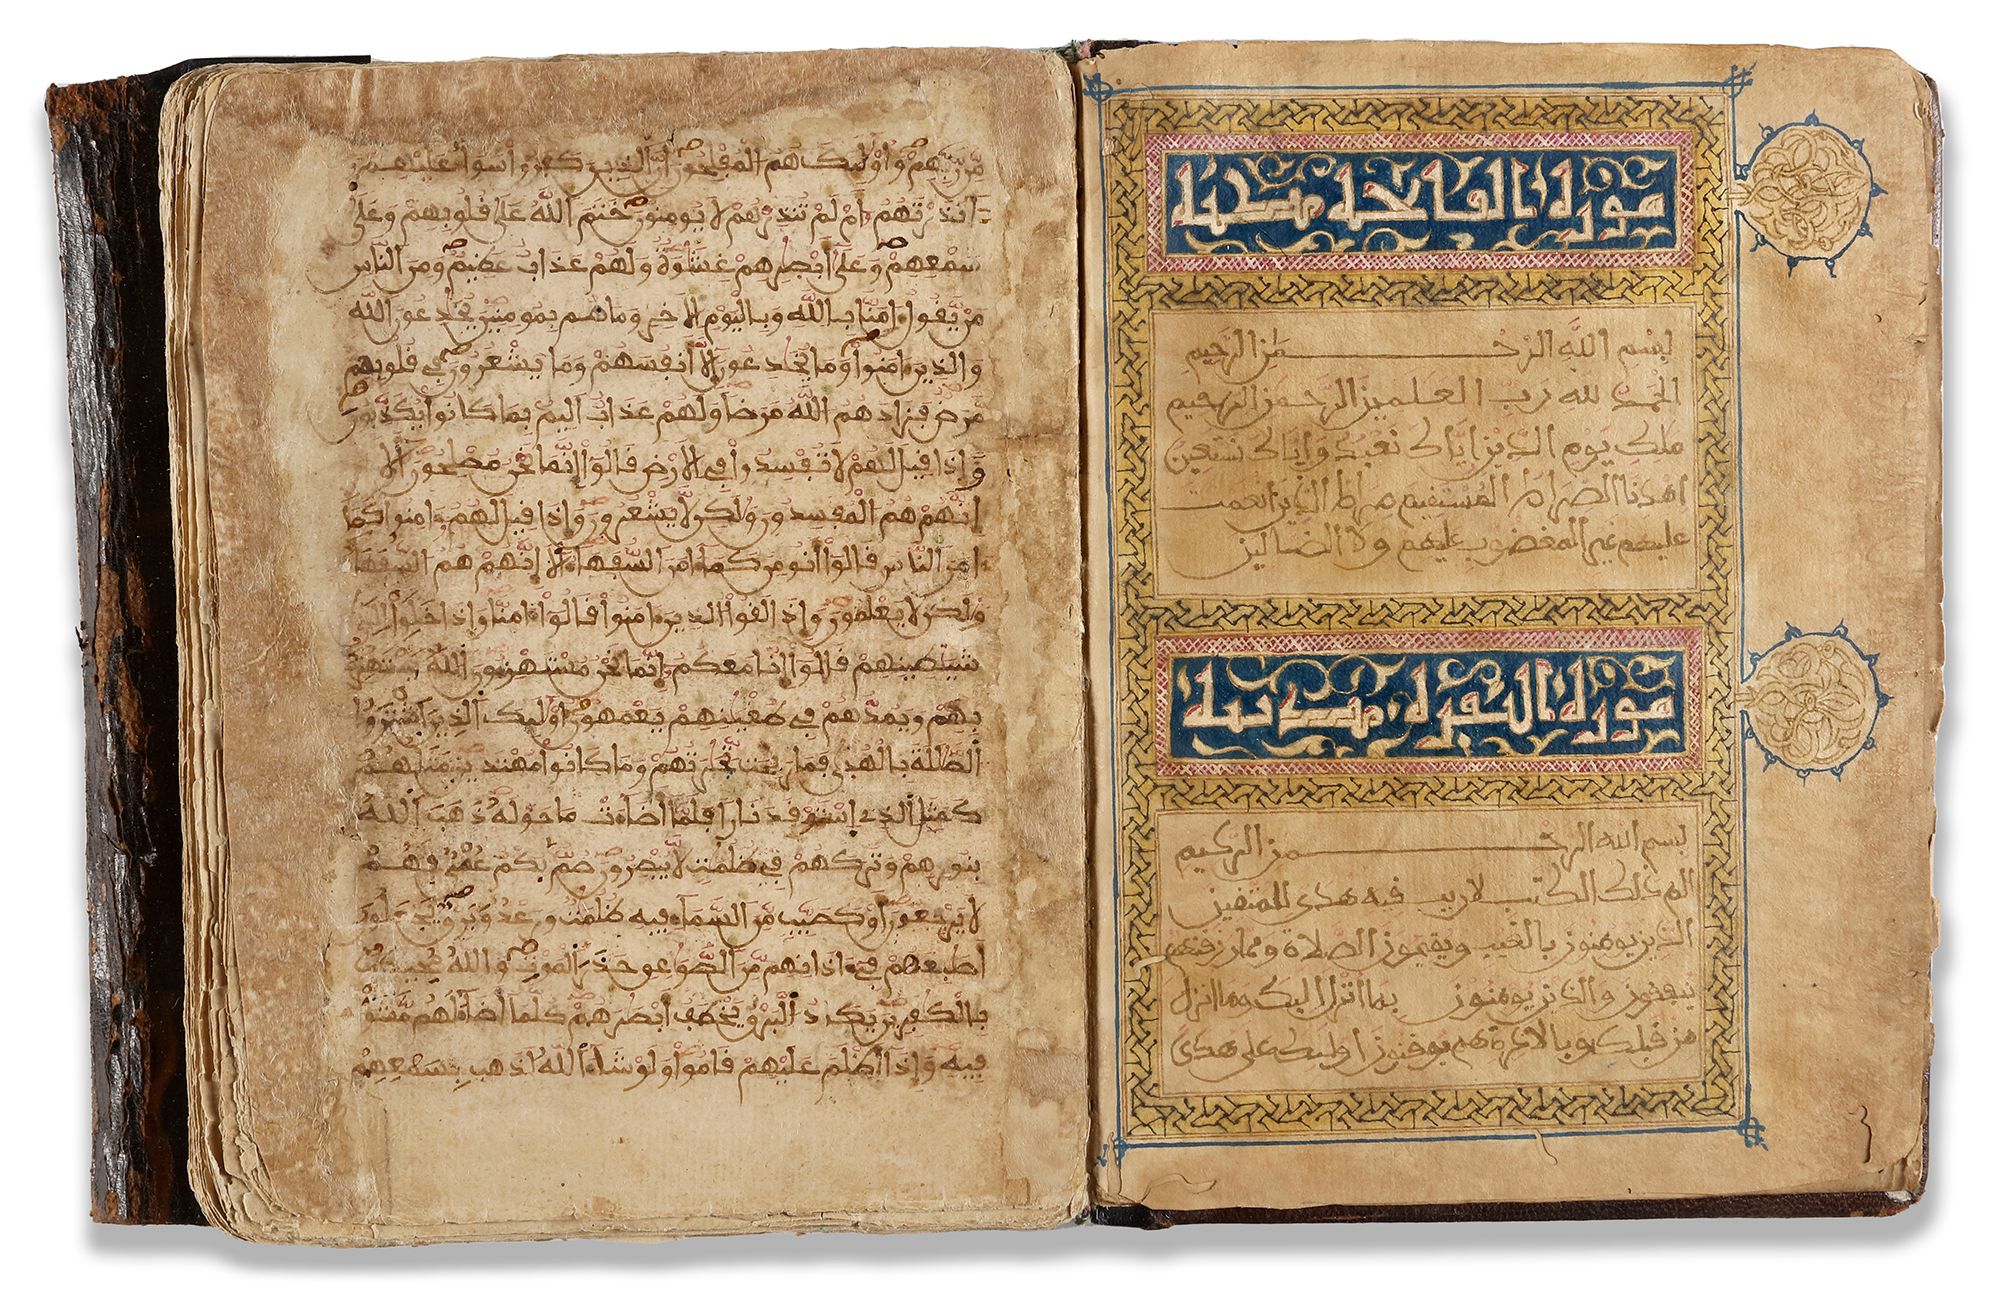 سورة الفاتحة مكية
بسم الله الرحمن الرحيم
الحمد لله رب العلمين الرحمن الرحيم
ملك يوم الدين اياك نعبد واياك نستعين
اهدنا الصراط المستقيم صراط الذين انعمت
عليهم غير المغضوب عليهم ولا الضالين
سورة البقرة مدنية
بسم الله الرحمن الرحيم
الم ذلك الكتب لا ريب فيه هدى للمتقين
الذين يومنون بالغيب ويقيمون الصلاة ومما رزقنهم
ينفقون والذين يومنون بما انزل اليك وما انزل
من قبلك وبالاخرة هم يوقنون اوليك على هدى
من ربهم واوليك هم المفلحون ان الذين كفروا سوا عليهم
ءانذرتهم ام لم تنذرهم لا يومنون ختم الله على قلوبهم وعلى
سمعهم وعلى ابصرهم غشوة ولهم عذاب عظيم ومن الناس
من يقول ءامنا بالله وباليوم الاخر وما هم بمومنين يخدعون الله
والذين ءامنوا وما يخدعون الا انفسهم وما يشعرون في قلوبهم
مرض فزادهم الله مرضا ولهم عذاب اليم بما كانوا يكذبون
واذا قيل لهم لا تفسدوا في الارض قالوا انما نحن مصلحون الا
انهم هم المفسدون ولكن لا يشعرون واذا قيل لهم ءامنوا كما
ءامن الناس قالوا انومن كما ءامن السفها الا انهم هم السفها
ولكن لا يعلمون واذا لقوا الذين ءامنوا قالوا ءامنا واذا خلوا الى
شيطينهم قالوا انا معكم انما نحن مستهزون الله يستهزئ
بهم ويمدهم في طغينهم يعمهون اوليك الذين اشتروا
الضللة بالهدى فما ربحت تجرتهم وما كانوا مهتدين مثلهم
كمثل الذي استوقد نارا فلما اضاءت ما حوله ذهب الله
بنورهم وتركهم في ظلمت لا يبصرون صم بكم عمي فهم
لا يرجعون او كصيب من السماء فيه ظلمت ورعد وبرق يجعلون
اصبعهم في ءاذانهم من الصوعق حذر الموت والله محيط
بالكفرين يكاد البرق يخطف ابصرهم كلما اضاء لهم مشوا
فيه واذا اظلم عليهم قاموا ولو شاء الله لذهب بسمعهم